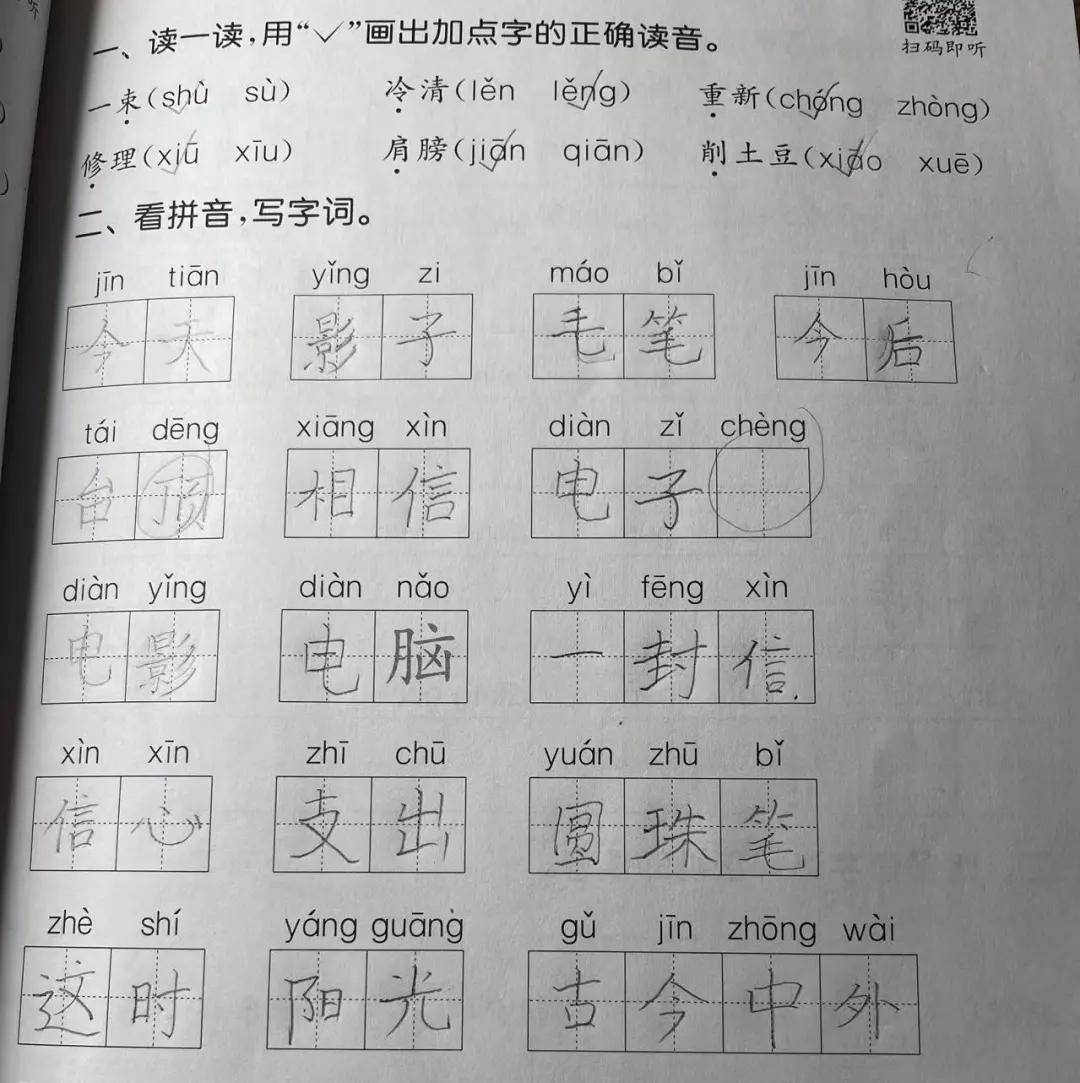 一、读一读，用“✓”画出加点字的正确读音。
扫码即听
一束(shù sù) 冷清(lěn lěng) 重新(chóng zhòng)
修理(xiū xīu) 肩膀(jiān qiān) 削土豆(xiāo xuē)
二、看拼音，写字词。
jīn tiān yǐng zi máo bǐ jīn hòu
今天 影子 毛笔 今后
tái dēng xiāng xìn diàn zǐ chèng
台顶 相信 电子
diàn yǐng diàn nǎo yì fēng xìn
电影 电脑 一封信
xìn xīn zhī chū yuán zhū bǐ
信心 支出 圆珠笔
zhè shí yáng guāng gǔ jīn zhōng wài
这时 阳光 古今中外